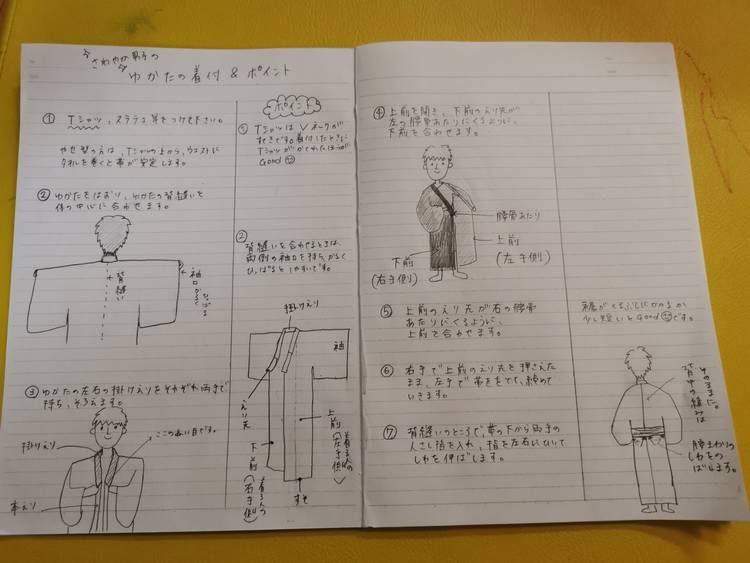 さわやか男子の
ゆかたの着付 & ポイント
① Tシャツ、ステテコ等をつけて下さい。
やせ型の方は、Tシャツの上から、ウエストに
タオルを巻くと帯が安定します。
② ゆかたをはおり、ゆかたの背縫いを
体の中心に合わせます。
背縫い
袖口かるく
ひっぱる
③ ゆかたの左右の掛けえりをそれぞれ両手で
持ち、そろえます。
掛けえり
ここの縫い目です。
本えり
ポイント
① TシャツはVネックが
すてきです。着付したときに
Tシャツがかくれたほうが
Good
② 背縫いを合わせるときは、
両側の袖口を持ち、かるく
ひっぱるとしやすいです。
掛けえり
袖
えり先
上前
(着る人の
左手側)
下前
(着る人の
右手側)
すそ
④ 上前を開き、下前のえり先が
左の腰骨あたりにくるように、
下前を合わせます。
腰骨あたり
上前
(左手側)
下前
(右手側)
⑤ 上前のえり先が右の腰骨
あたりにくるように、
上前を合わせます。
⑥ 右手で上前のえり先を押さえた
まま、左手で帯をとって、締めて
いきます。
⑦ 背縫いのところで、帯の下から両手の
人さし指を入れ、指を左右にひいて
しわを伸ばします。
裾がくるぶしにかかるか
少し短いとGoodです。
背中の縫みは
そのままに。
腰まわりの
しわをの
ばします。